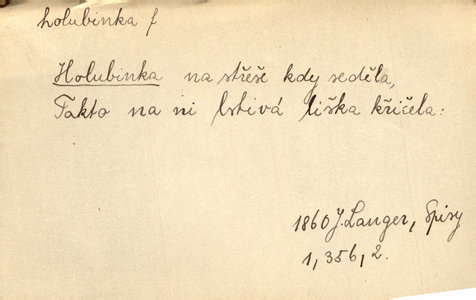 holubinka f
Holubinka na střeše kdy seděla,
Takto na ni lstivá liška křičela:
1860 J. Langer, Spisy
1, 356, 2.